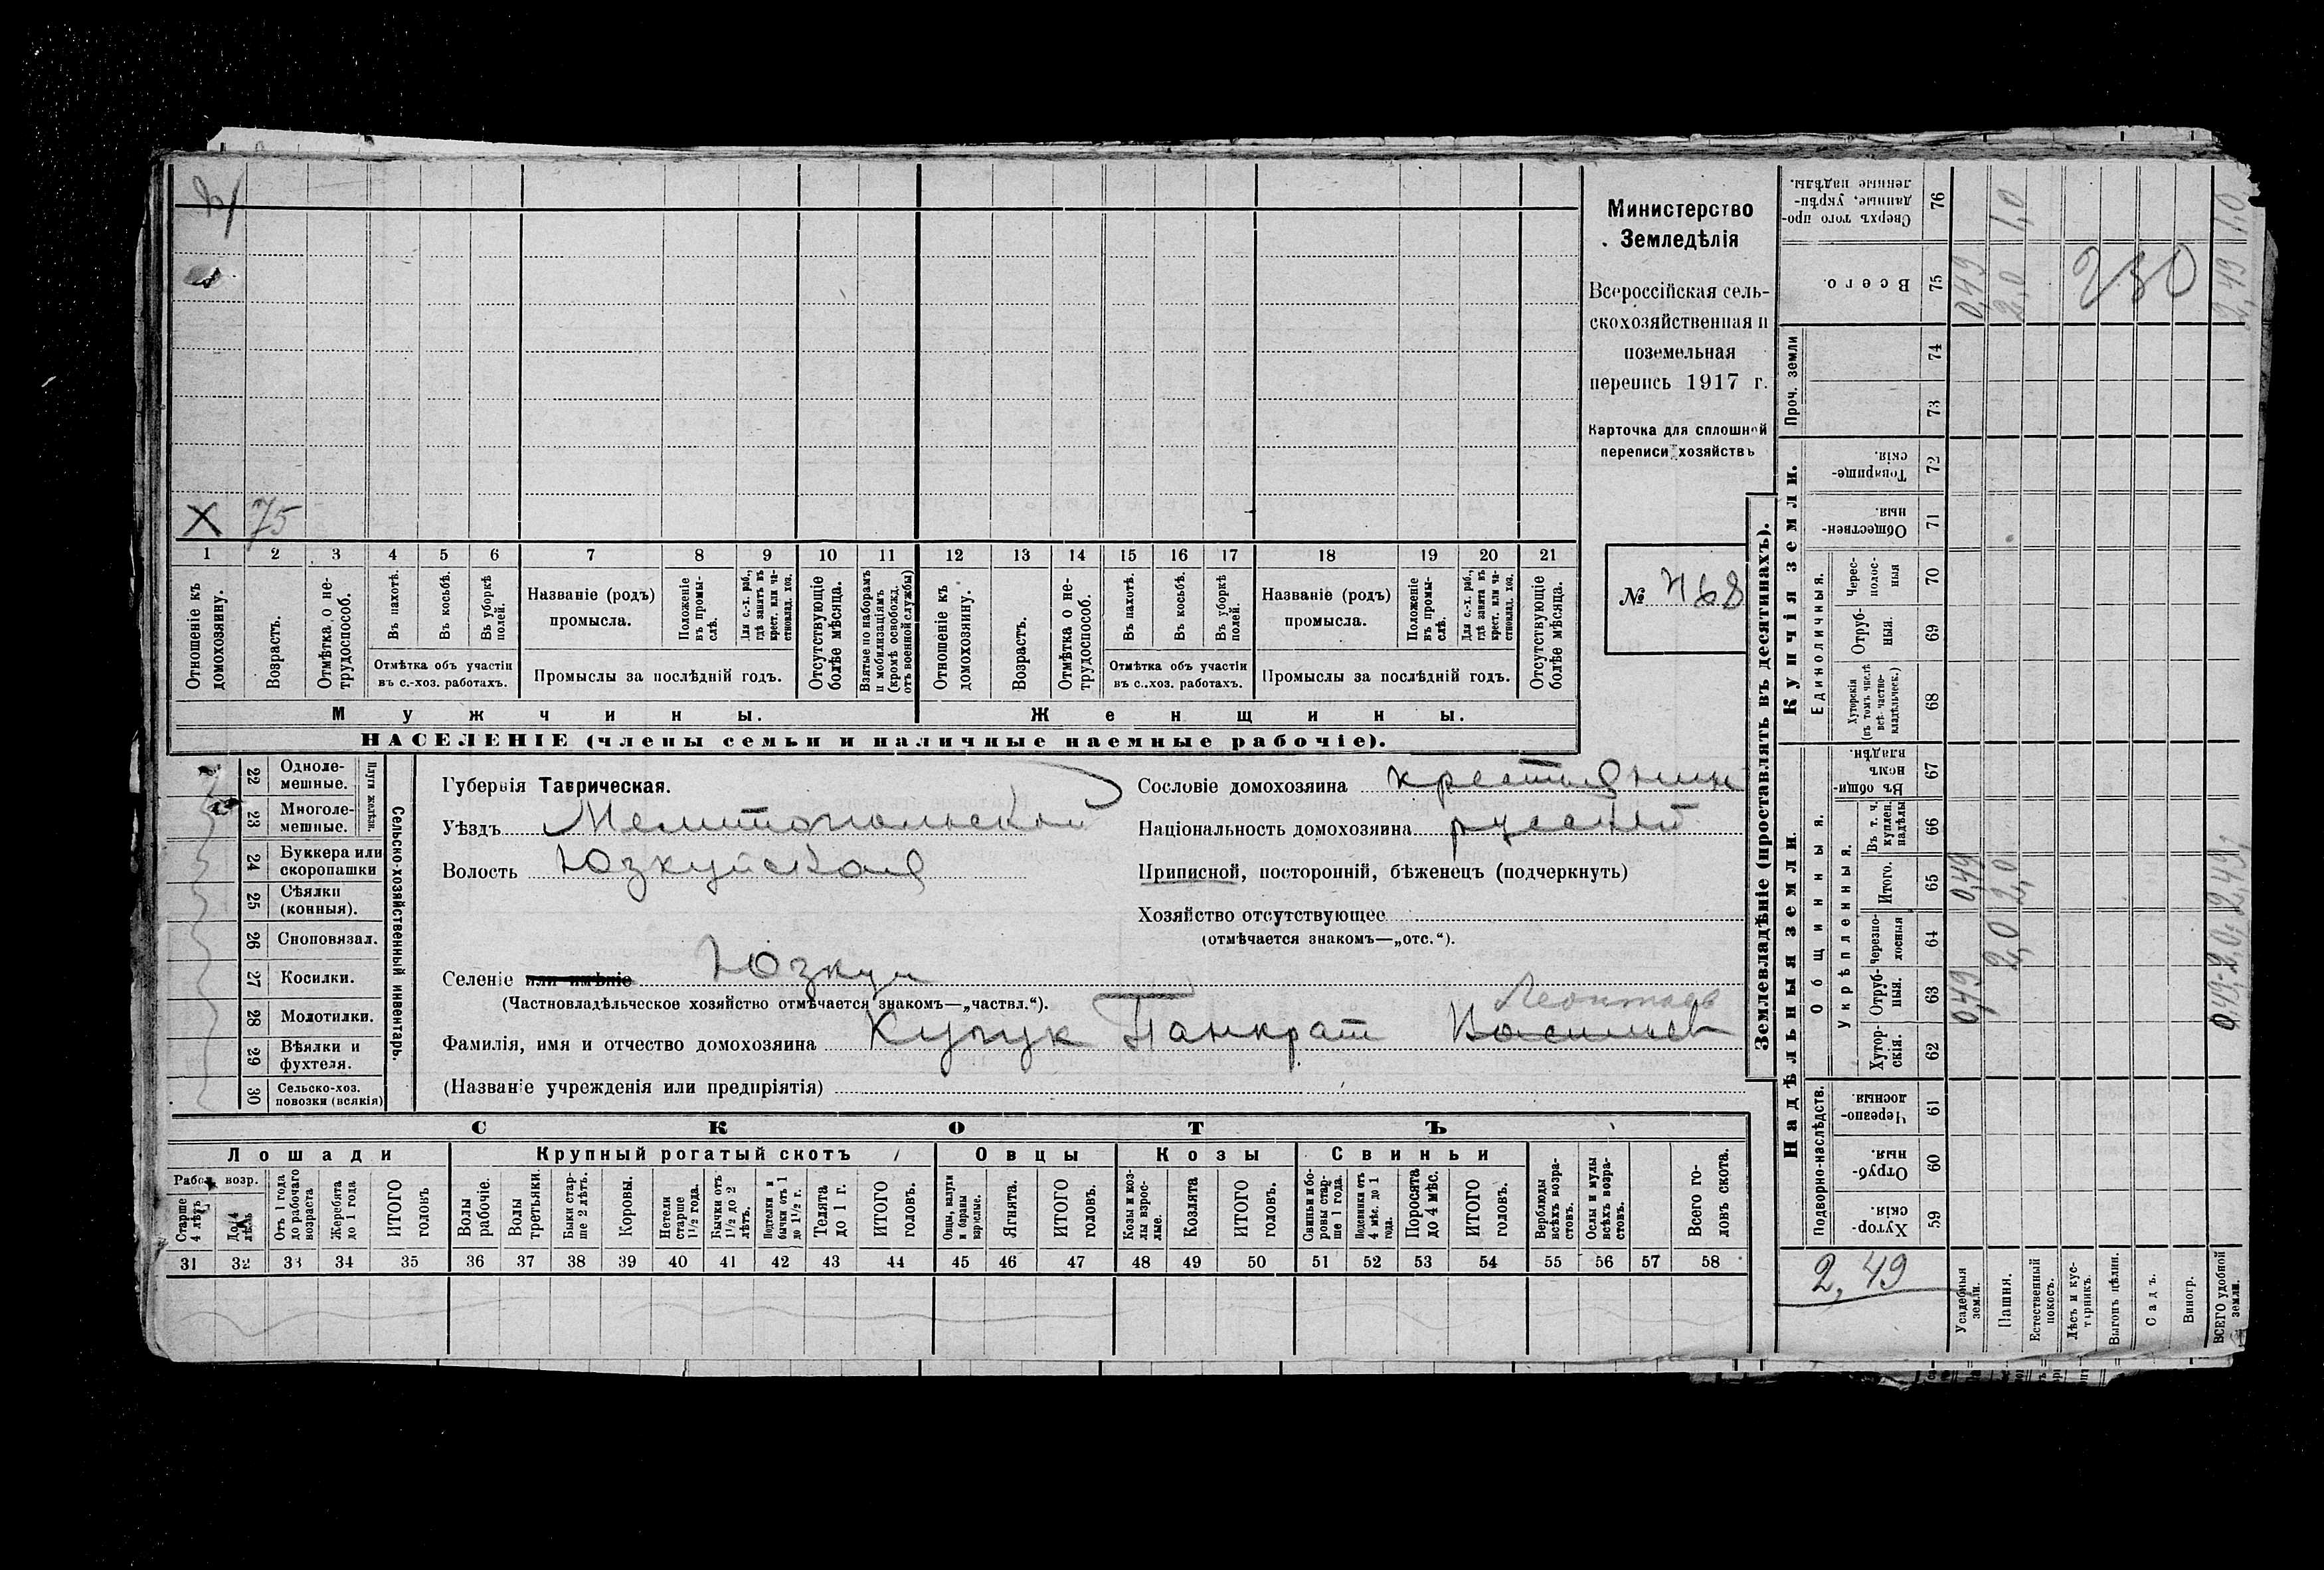 Министерство
Земледѣлія
Всероссійская сель-
скохозяйственная и
поземельная
перепись 1917 г.
Карточка для сплошной
переписи хозяйствъ
№ 468
X 75
1 2 3 4 5 6 7 8 9 10 11 12 13 14 15 16 17 18 19 20 21
Отношеніе къ домохозяину.
Возрастъ.
Отмѣтка о не-трудоспособ.
Въ пахотѣ.
Въ косьбѣ.
Въ уборкѣ полей.
Отмѣтка объ участіи въ с.-хоз. работахъ.
Названіе (родъ) промысла.
Положеніе въ промы-слѣ.
Для с.-х. раб., гдѣ занятъ въ крест. или ча-стновлад. хоз.
Промыслы за послѣдній годъ.
Отсутствующіе болѣе мѣсяца.
Взятые по наборамъ и мобилизаціямъ (кромѣ освобожд. отъ военной службы)
Отношеніе къ домохозяину.
Возрастъ.
Отмѣтка о не-трудоспособ.
Въ пахотѣ.
Въ косьбѣ.
Въ уборкѣ полей.
Отмѣтка объ участіи въ с.-хоз. работахъ.
Названіе (родъ) промысла.
Положеніе въ промы-слѣ.
Для с.-х. раб., гдѣ занята въ крест. или ча-стновлад. хоз.
Промыслы за послѣдній годъ.
Отсутствующіе болѣе мѣсяца.
Мужчины. Женщины.
НАСЕЛЕНІЕ (члены семьи и наличные наемные рабочіе).
22 Одноле-мешные.
23 Многоле-мешные.
Плуги желѣзн.
24 Буккера или скоропашки
25 Сѣялки (конныя).
26 Сноповязал.
27 Косилки.
28 Молотилки.
29 Вѣялки и фухтеля.
30 Сельско-хоз. повозки (всякія)
Сельско-хозяйственный инвентарь.
Губернія Таврическая.
Уѣздъ Мелитопольский
Волость Юзкуйская
Селеніе или имѣніе Юзкуи
(Частновладѣльческое хозяйство отмѣчается знакомъ—„частвл.“).
Сословіе домохозяина крестьянин
Національность домохозяина русский
Приписной, посторонній, бѣженецъ (подчеркнуть)
Хозяйство отсутствующее
(отмѣчается знакомъ—„отс.“).
Леонтьев
Фамилія, имя и отчество домохозяина Кучук Панкрат Васильев
(Названіе учрежденія или предпріятія)
СКОТЪ
Лошади Крупный рогатый скотъ Овцы Козы Свиньи
Рабоч. возр.
Старше 4 лѣтъ
До 4 лѣтъ
Отъ 1 года до рабочаго возраста
Жеребята до 1 года
ИТОГО головъ
Волы рабочіе.
Волы третьяки.
Быки стар-ше 2 лѣтъ.
Коровы.
Нетели старше 1½ года.
Бычки отъ 1½ до 2 лѣтъ.
Подтелки и бычки отъ 1 до 1½ г.
Телята до 1 г.
ИТОГО головъ.
Овцы, валухи и бараны взрослые.
Ягнята.
ИТОГО головъ.
Козы и коз-лы взрос-лые.
Козлята
ИТОГО головъ.
Свиньи и бо-ровы стар-ше 1 года.
Подсвинки отъ 4 мѣс. до 1 года.
Поросята до 4 мѣс.
ИТОГО головъ.
Верблюды всѣхъ возра-стовъ.
Ослы и мулы всѣхъ возра-стовъ.
Всего го-ловъ скота.
31 32 33 34 35 36 37 38 39 40 41 42 43 44 45 46 47 48 49 50 51 52 53 54 55 56 57 58
Землевладѣніе (проставлять въ десятинахъ).
Надѣльныя земли. Купчія земли. Проч. земли
Подворно-наслѣдств. Общинныя. Укрѣпленныя. Единоличныя.
Хутор-скія. 59
Отруб-ныя. 60
Черезпо-лосныя 61
Хутор-скія. 62
Отруб-ныя. 63
Черезпо-лосныя 64
Итого. 65
Въ т. ч. куплен. надѣлы 66
Въ общин-номъ владѣн. 67
Хуторскія (въ томъ числѣ всѣ частно-владѣльческ.) 68
Отруб-ныя. 69
Черес-полос-ныя 70
Обществен-ныя. 71
Товарище-скія. 72
73
74
Всего. 75
Сверхъ того про-данные, укрѣп-ленные надѣлы. 76
2,49
Усадебныя земли. 0,49 0,49 0,49
Пашня. 2,0 2,0 2,0 1,0
Естественный покосъ.
Лѣсъ и кус-тарникъ.
Выгонъ цѣлин.
Садъ.
Виногр.
ВСЕГО удобной земли. 0,49 2,0 2,49 2,49 1,0
230